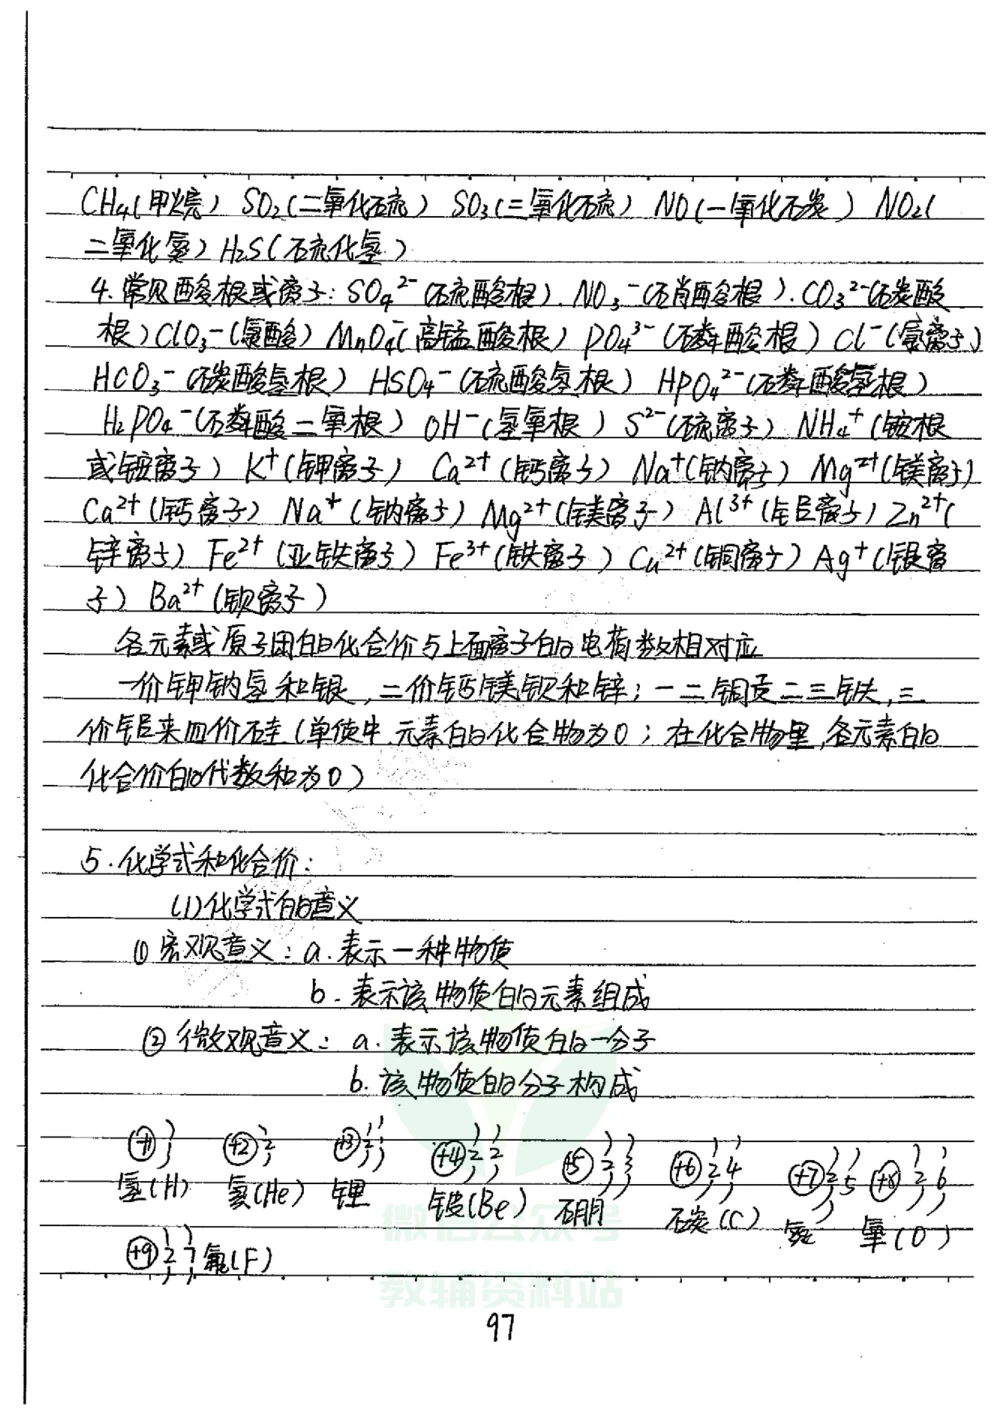 CH₄(甲烷) SO₂(二氧化硫) SO₃(三氧化硫) NO(一氧化碳) NO₂(
二氧化氮) H₂S(硫化氢)
4.常见酸根或离子:SO₄²⁻(硫酸根).NO₃⁻(硝酸根).CO₃²⁻(碳酸
根)ClO₃⁻(氯酸) MnO₄⁻(高锰酸根) PO₄³⁻(磷酸根) Cl⁻(氯离子)
HCO₃⁻(碳酸氢根) HSO₄⁻(硫酸氢根) HPO₄²⁻(磷酸氢根)
H₂PO₄⁻(磷酸二氢根) OH⁻(氢氧根) S²⁻(硫离子) NH₄⁺(铵根
或铵离子) K⁺(钾离子) Ca²⁺(钙离子) Na⁺(钠离子) Mg²⁺(镁离子)
Ca²⁺(钙离子) Na⁺(钠离子) Mg²⁺(镁离子) Al³⁺(铝离子) Zn²⁺(
锌离子) Fe²⁺(亚铁离子) Fe³⁺(铁离子) Cu²⁺(铜离子) Ag⁺(银离
子) Ba²⁺(钡离子)
各元素或原子团的化合价与上面离子的电荷数相对应
一价钾钠氢和银,二价钙镁钡和锌;一二铜汞二三铁,三
价铝来四价硅(单质中,元素的化合物为0;在化合物里,各元素的
化合价的代数和为0)
5.化学式和化合价:
(1)化学式的意义
①宏观意义:a.表示一种物质
b.表示该物质的元素组成
②微观意义:a.表示该物质的一分子
b.该物质的分子构成
+1 +2 2 +3 2 1 +4 2 2 +5 2 3 +6 2 4 +7 2 5 +8 2 6
氢(H) 氦(He) 锂 铍(Be) 硼 碳(C) 氮 氧(O)
+9 2 7 氟(F)
微信公众号
教辅资料站
97